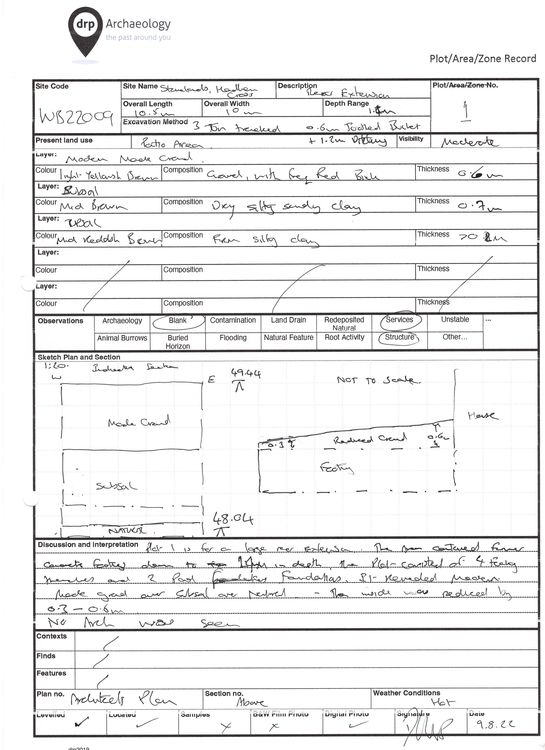 drp Archaeology
the past around you
Plot/Area/Zone Record
Site Code
WB22009
Site Name
Cross
Description
Extension
Plot/Area/Zone No.
1
Overall Length
10.5m
Overall Width
10m
Depth Range
Excavation Method
3 Ton tracked 0.6m Toothed Bucket
+ 1.2m
Present land use
Patio Area
Visibility
Moderate
Layer: Modern Made Ground
Colour Light Yellowish Brown
Composition Gravel, with freq Red Brick
Thickness
Layer: Subsoil
Colour Mid Brown
Composition Dry silty sandy clay
Thickness 0.7m
Layer:
Colour Mid Reddish Brown
Composition Firm silty clay
Thickness
Layer:
Colour
Composition
Thickness
Layer:
Colour
Composition
Thickness
Observations
Archaeology
Blank
Contamination
Land Drain
Redeposited Natural
Services
Unstable
...
Animal Burrows
Buried Horizon
Flooding
Natural Feature
Root Activity
Structure
Other...
Sketch Plan and Section
1:20. Indicative Section
W
E
49.44
NOT TO Scale
House
Made Ground
0.3
Reduced Ground
0.6
Footing
Subsoil
48.04
NATURAL
Discussion and Interpretation
Plot 1 is for a large rear extension. The
concrete footings down to in depth the Plot consisted of 4 Footing
trenches and 2 Pad Foundations. Plot 1 revealed Modern
Made ground over Subsoil over Natural - The inside was reduced by
0.3 - 0.6m
No Arch was seen
Contexts
Finds
Features
Plan no. Architects Plan
Section no. Above
Weather Conditions
Hot
Levelled
Located
Samples
B&W Film Photo
Digital Photo
Signature
Date
9.8.22
drp2019